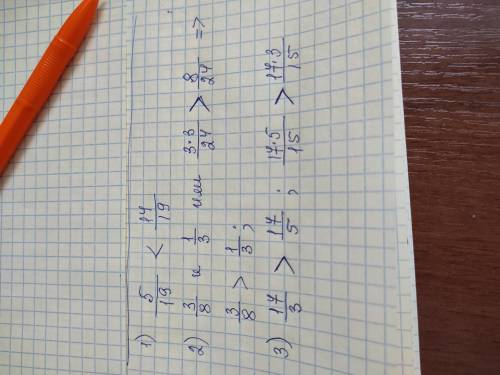 1) 5/19 < 14/19
2) 3/8 и 1/3 или 3·3/24 > 8/24 =>
3/8 > 1/3;
3) 17/3 > 17/5; 17·5/15 > 17·3/15